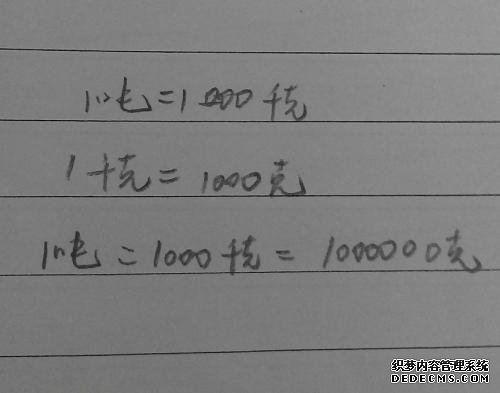 1吨=1000千克
1千克=1000克
1吨=1000千克=1000000克
织梦内容管理系统
DEDECMS.COM